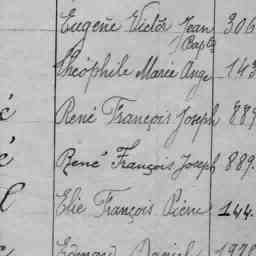 Eugène Victor Jean 306
Bapte
Théophile Marie Ange 143
é René François Joseph 889
é René François Joseph 889.
l Elie François Pierre 144.
Edmond Daniel